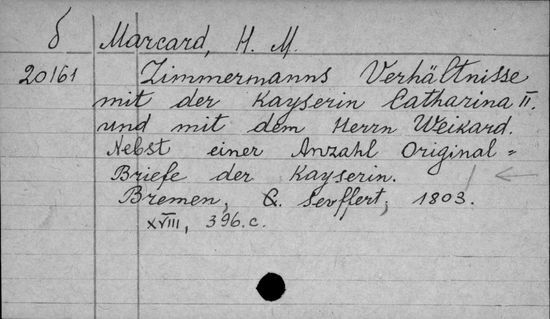 б Marcard, H. M.
20161 Zimmermanns Verhältnisse
mit der Kayserin Catharina II.
und mit dem Herrn Weikard.
Nebst einer Anzahl Original=
Briefe der Kayserin.
Bremen, C. Seyffert, 1803.
XVIII, 396.c.